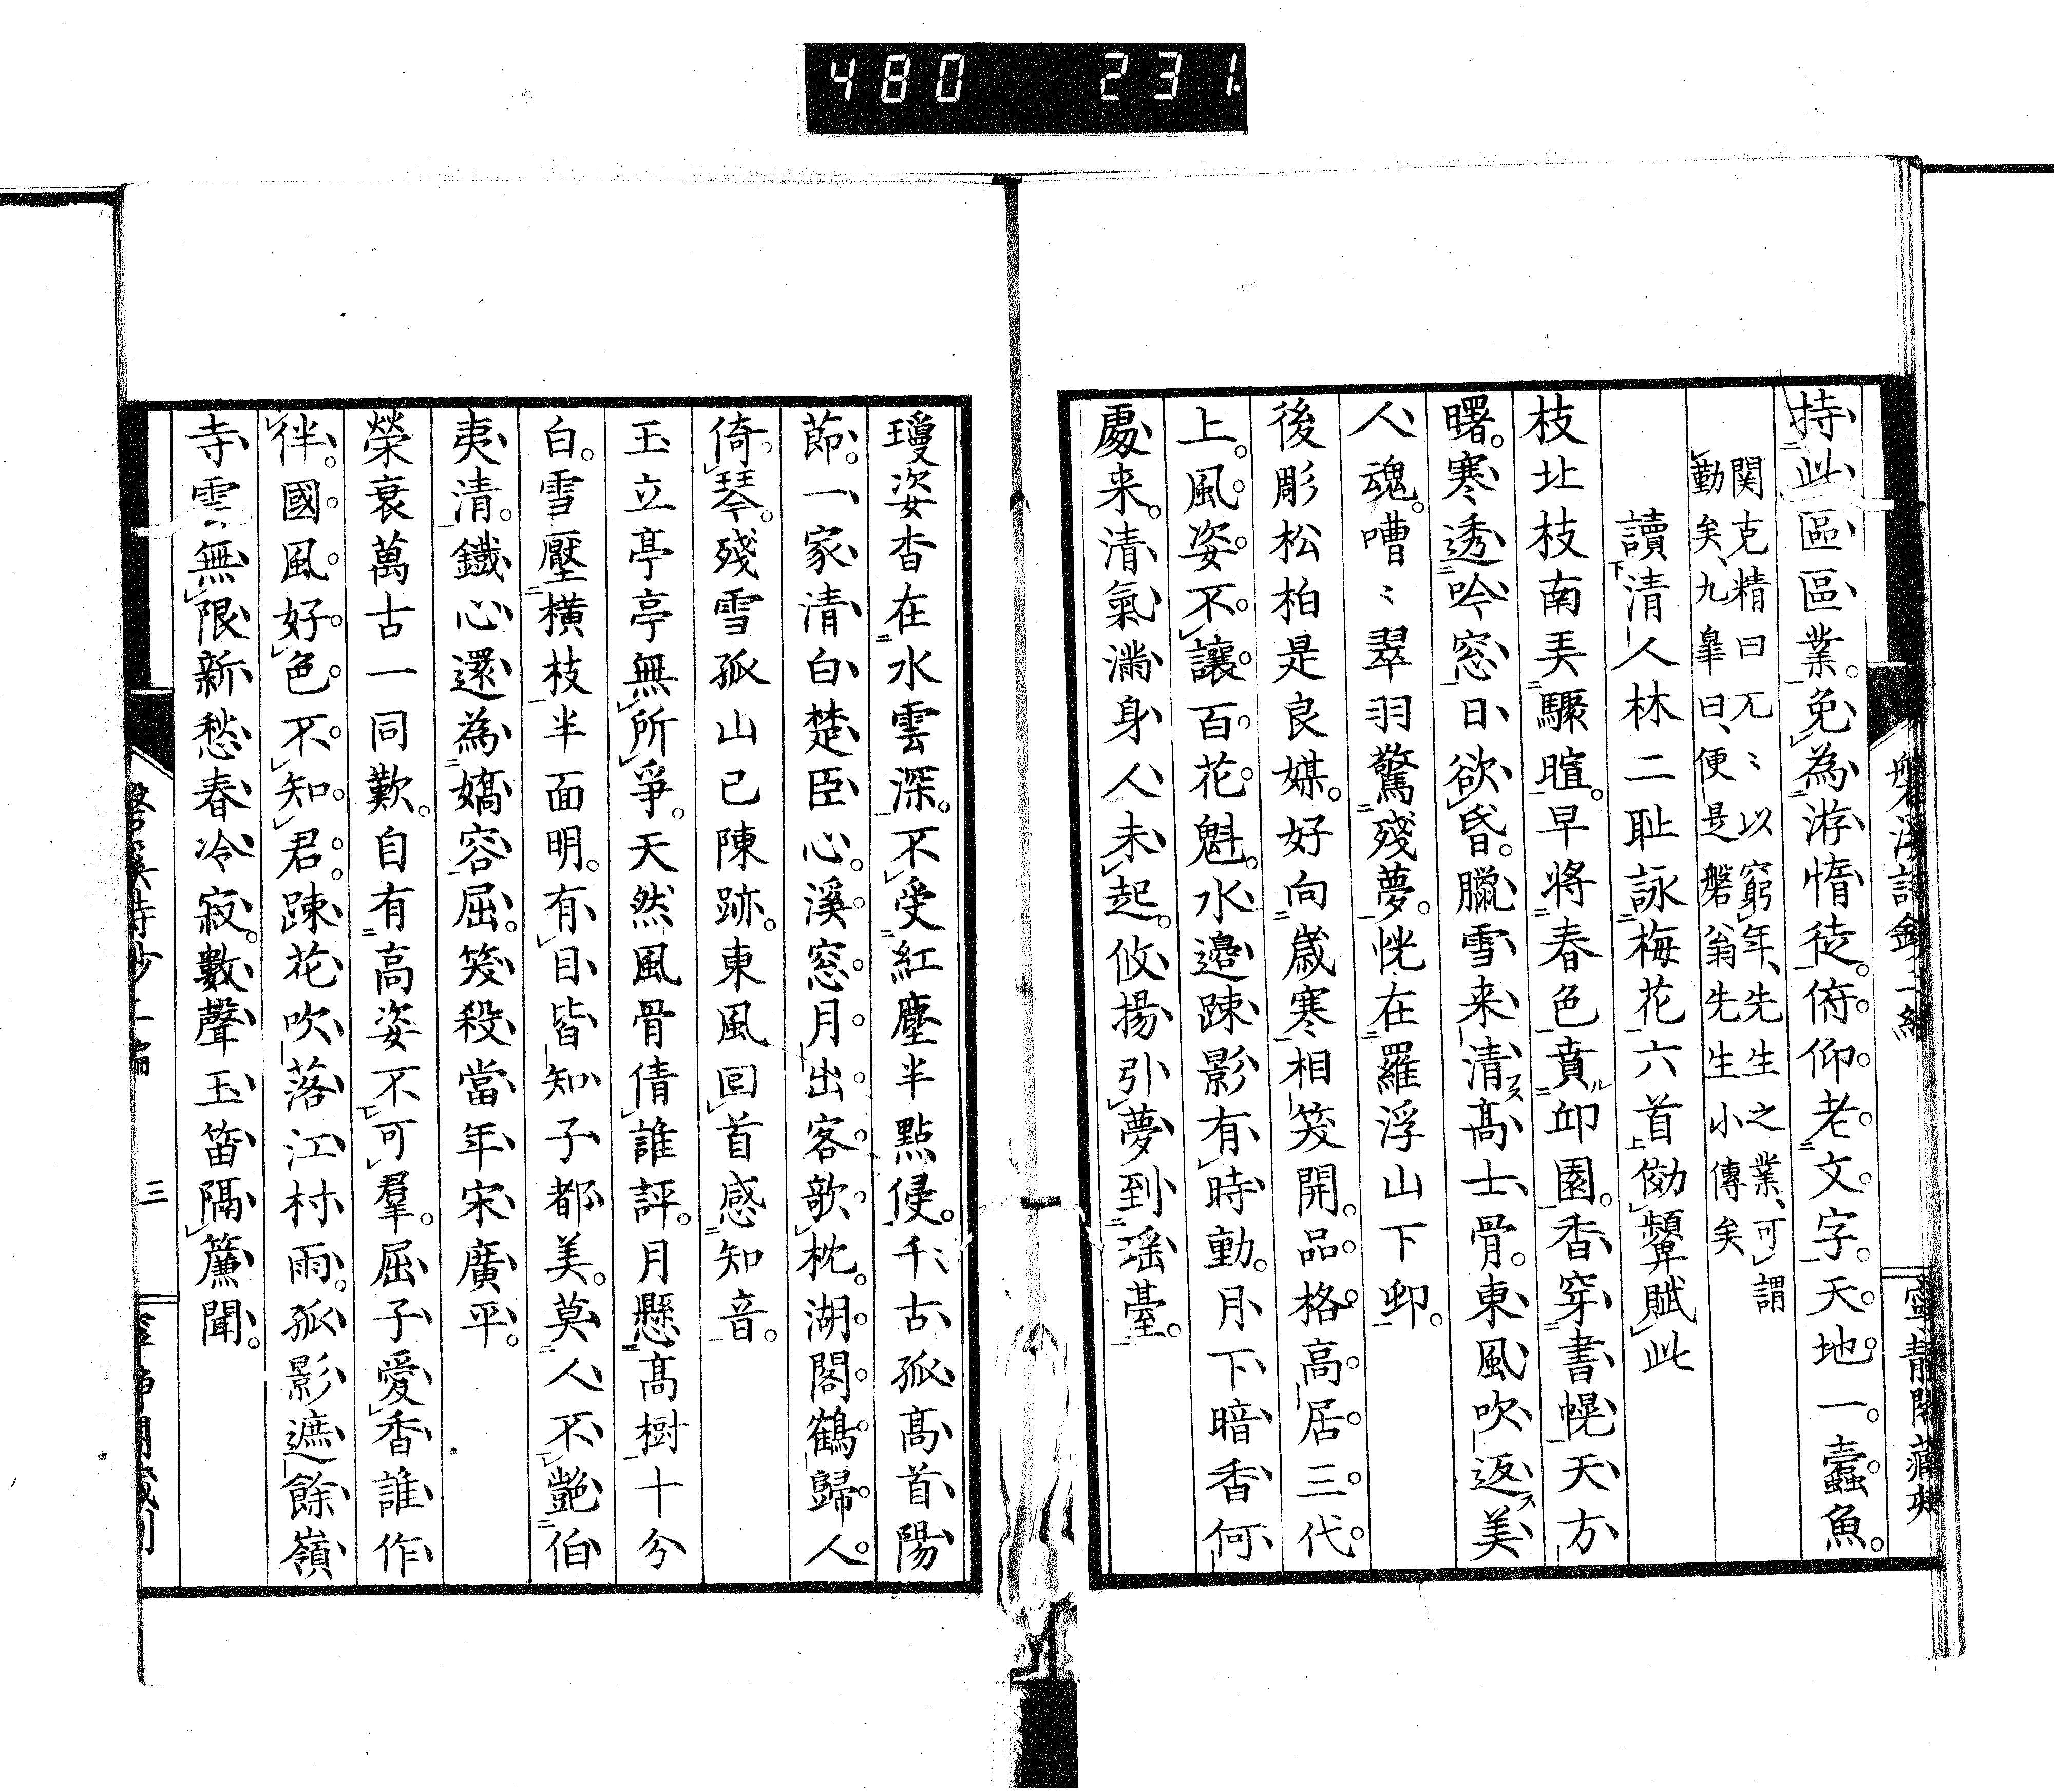 480 231
持此區區業。免為游惰徒。俯仰老文字。天地一蠹魚。
関克精曰兀〻以窮年、先生之業、可謂
勤矣、九皋曰、便是磐翁先生小傳矣
讀清人林二耻詠梅花六首傚顰賦此
枝北枝南美驟暄。早將春色賁邱園。香穿書幌天方
曙。寒透吟窓日欲昏。臘雪来清高士骨。東風吹返美
人魂。嘈〻翠羽驚殘夢。恍在羅浮山下邨。
後彫松柏是良媒。好向歳寒相笑開。品格高居三代
上。風姿不讓百花魁。水邊踈影有時動。月下暗香何
處来。清氣滿身人未起。攸揚引夢到瑶䑓。
瓊姿杳在水雲深。不受紅塵半點侵。千古孤高首陽
節。一家清白楚臣心。溪窓月出客歌枕。湖閣鶴歸人
倚琴。殘雪孤山已陳跡。東風回首感知音。
玉立亭亭無所爭。天然風骨倩誰評。月懸高樹十分
白。雪壓橫枝半面明。有目皆知子都美。莫人不艷伯
夷清。鐵心還為嬌容屈。笑殺當年宋廣平。
榮衰萬古一同歎。自有高姿不可羣。屈子愛香誰作
伴。國風好色不知君。踈花吹落江村雨。孤影遮餘嶺
寺雲。無限新愁春冷寂。數聲玉笛隔簾聞。
三